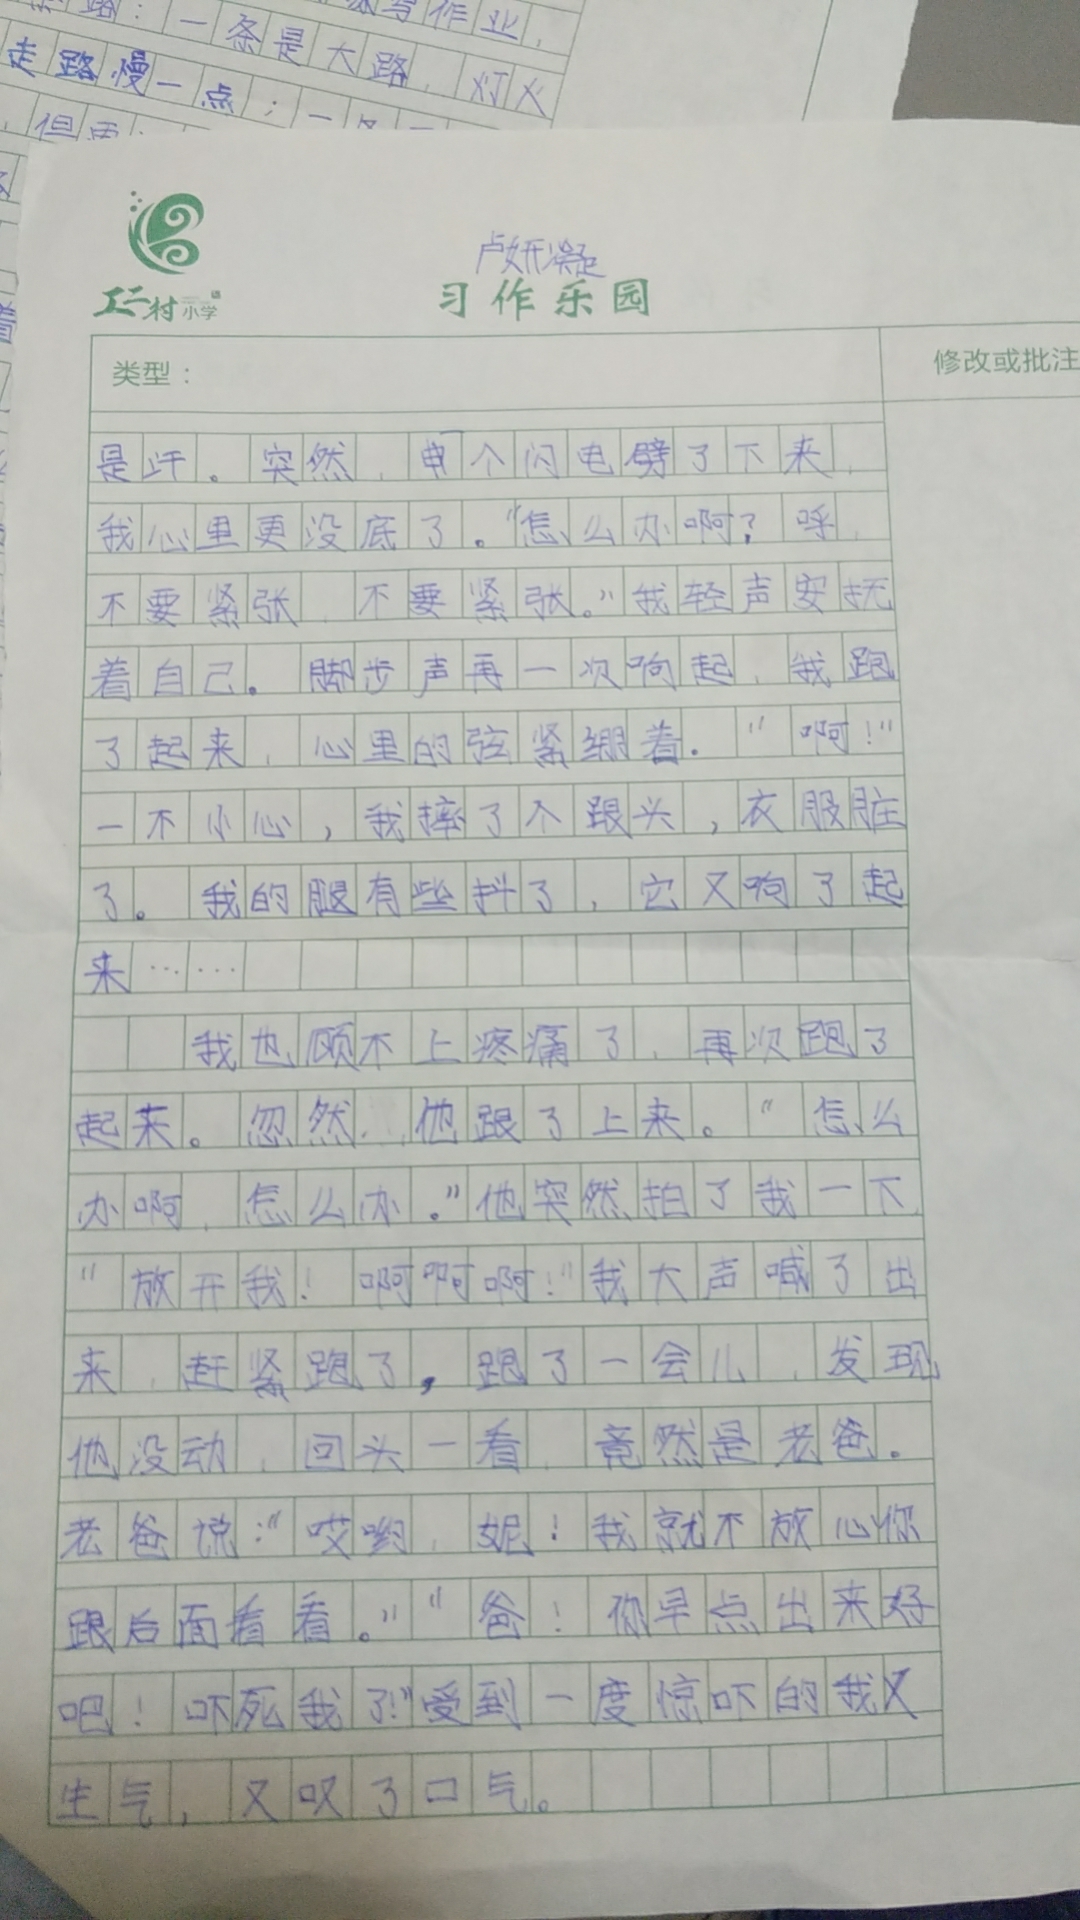 一条是大路，灯火
走路慢一点；一条
但更
卢妍凝
工二村小学
习作乐园
类型：
修改或批注
是汗。突然，电个闪电劈了下来，
我心里更没底了。“怎么办啊？呼，
不要紧张，不要紧张。”我轻声安抚
着自己。脚步声再一次响起，我跑
了起来，心里的弦紧绷着。“啊！”
一不小心，我摔了个跟头，衣服脏
了。我的腿有些抖了，它又响了起
来……
我也顾不上疼痛了，再次跑了
起来。忽然，他跟了上来。“怎么
办啊，怎么办。”他突然拍了我一下
“放开我！啊啊啊！”我大声喊了出
来，赶紧跑了，跑了一会儿，发现
他没动，回头一看，竟然是老爸。
老爸说：“哎哟，妮！我就不放心你
跟后面看看。”“爸！你早点出来好
吧！吓死我了！”受到一度惊吓的我又
生气，又叹了口气。